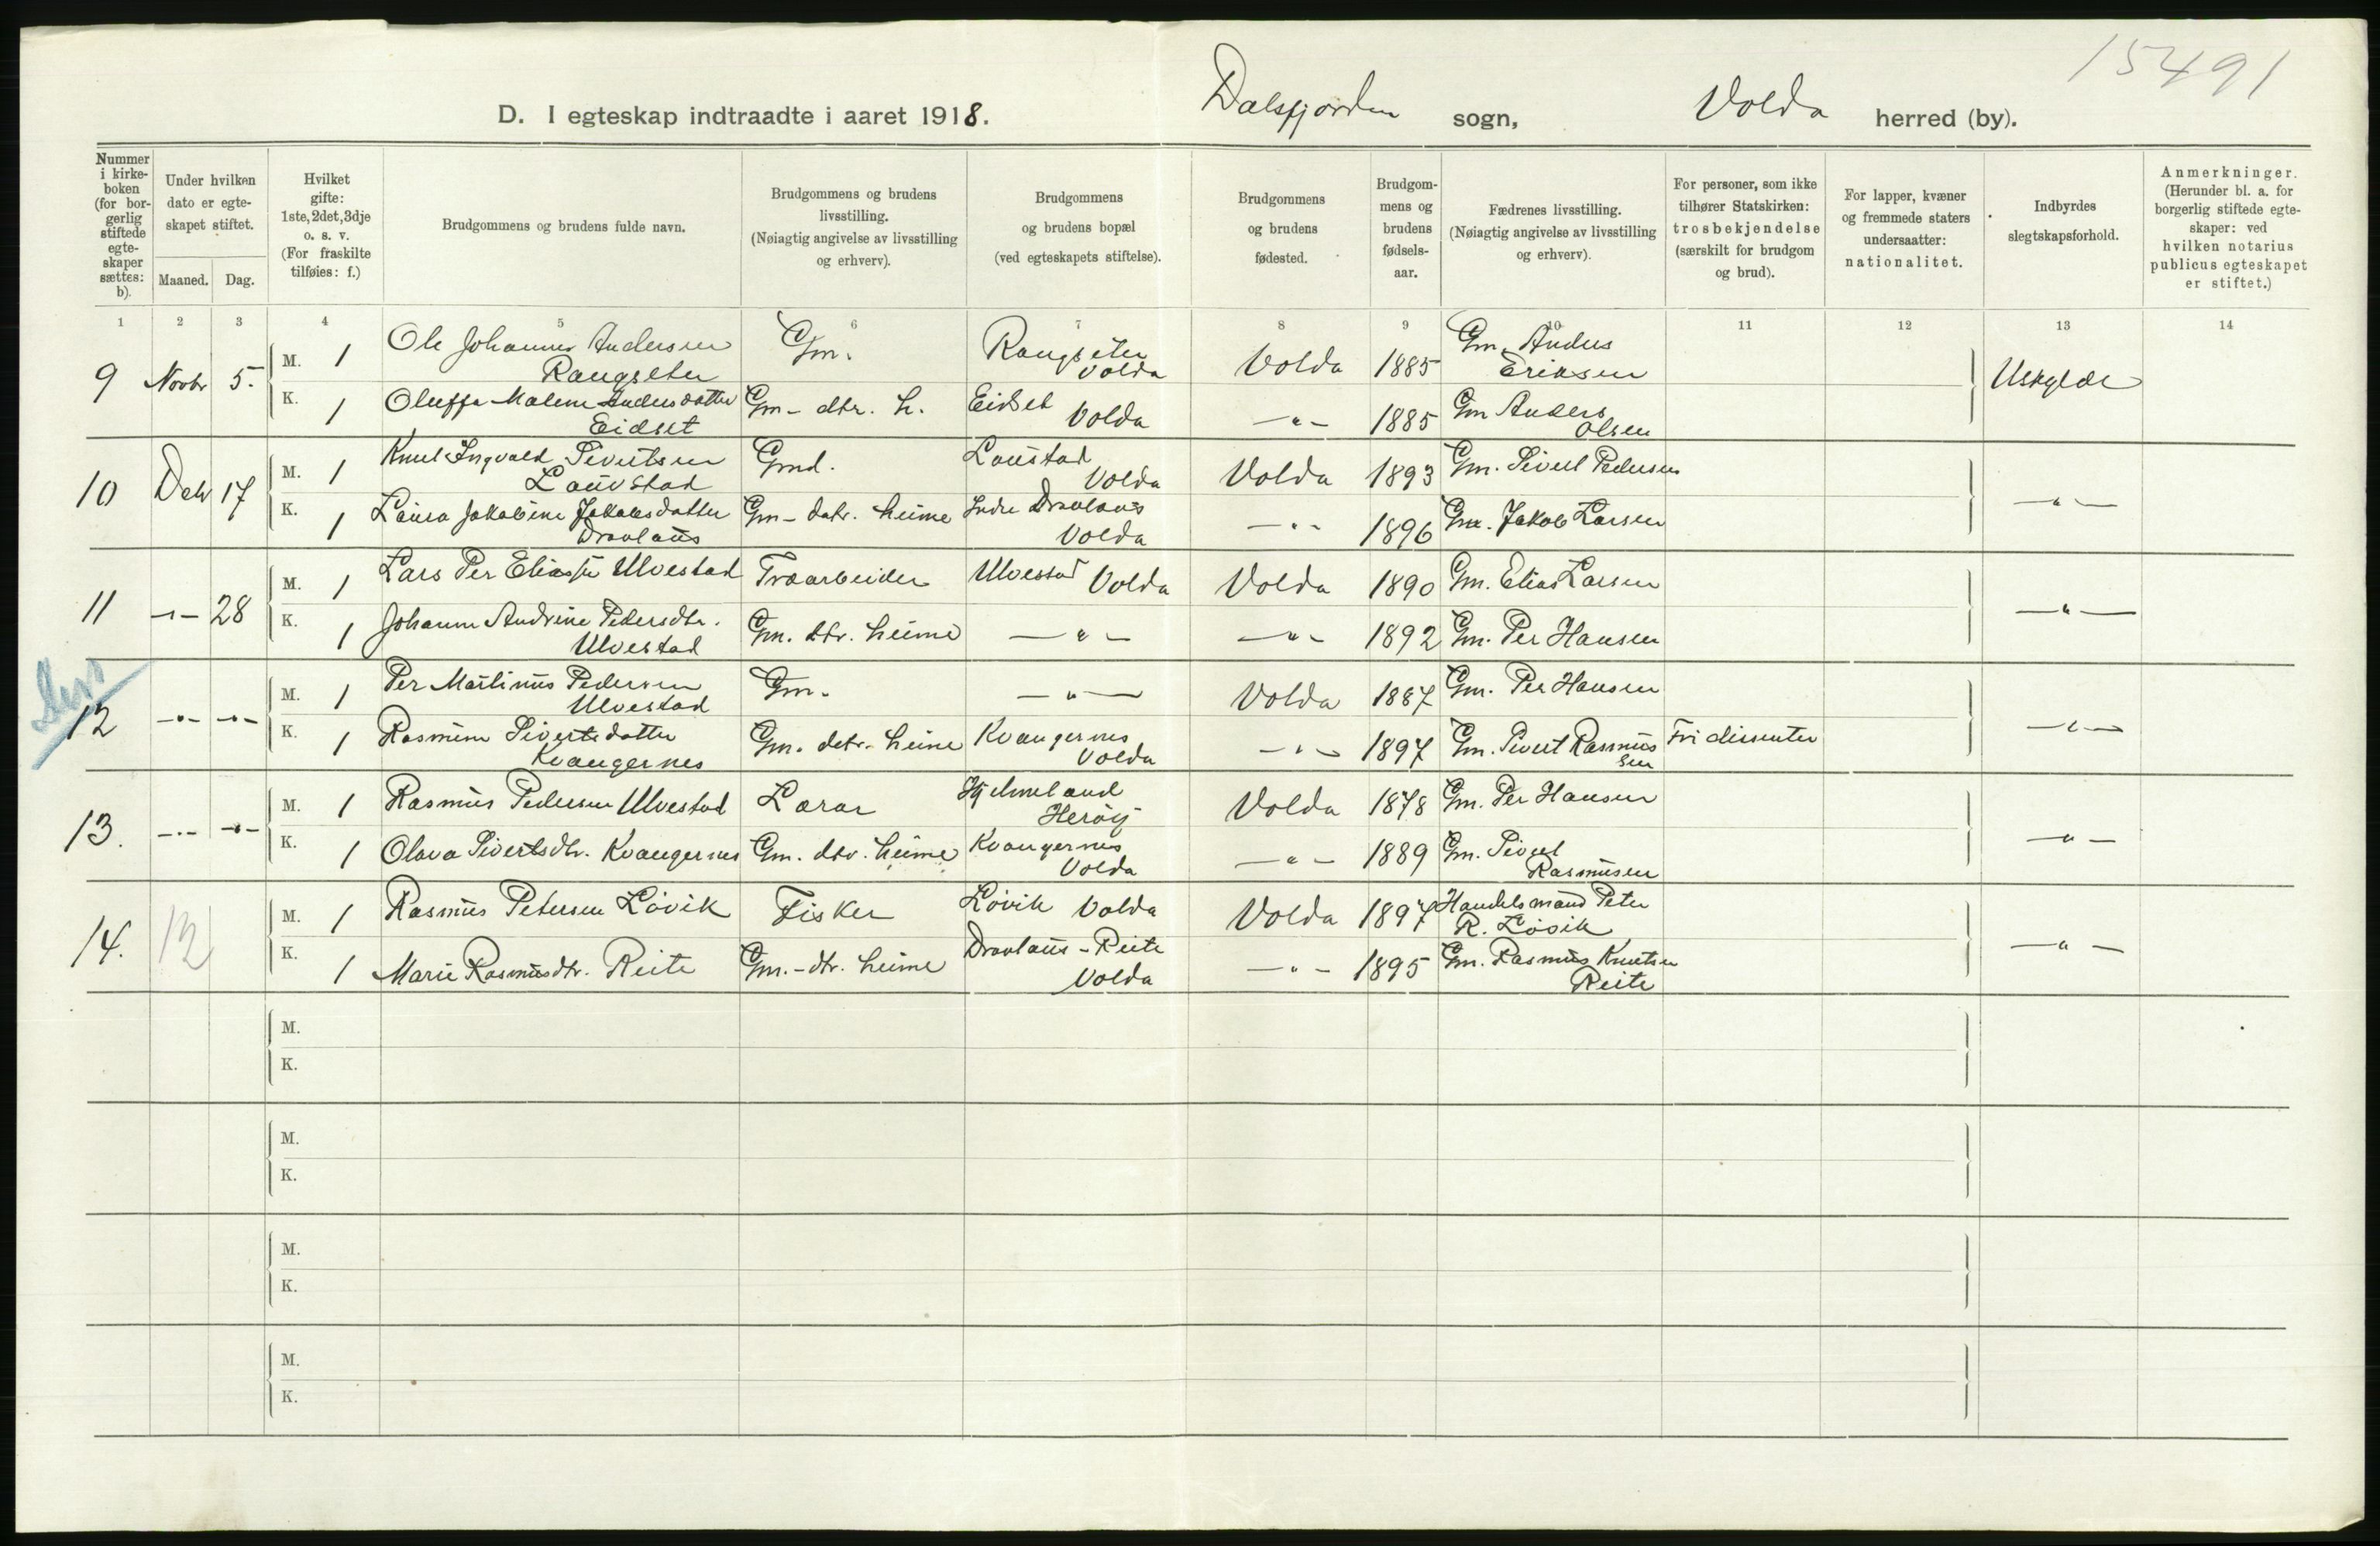 15491
D. I egteskap indtraadte i aaret 1918. Dalsfjorden sogn, Volda herred (by).
Nummer i kirke-boken (for bor-gerlig stiftede egte-skaper sættes: b).
Under hvilken dato er egte-skapet stiftet.
Maaned. Dag.
Hvilket gifte: 1ste, 2det, 3dje o. s. v. (For fraskilte tilføies: f.)
Brudgommens og brudens fulde navn.
Brudgommens og brudens livsstilling. (Nøiagtig angivelse av livsstilling og erhverv).
Brudgommens og brudens bopæl (ved egteskapets stiftelse).
Brudgommens og brudens fødested.
Brudgom-mens og brudens fødsels-aar.
Fædrenes livsstilling. (Nøiagtig angivelse av livsstilling og erhverv).
For personer, som ikke tilhører Statskirken: trosbekjendelse (særskilt for brudgom og brud).
For lapper, kvæner og fremmede staters undersaatter: nationalitet.
Indbyrdes slegtskapsforhold.
Anmerkninger. (Herunder bl. a. for borgerlig stiftede egte-skaper: ved hvilken notarius publicus egteskapet er stiftet.)
1 2 3 4 5 6 7 8 9 10 11 12 13 14
9 Novbr 5. M. 1 Ole Johannes Andersen Gm. Rangseter Volda 1885 Gm. Anders Uskylde
Rangseter Volda Eriksen
K. 1 Oluffa Malene Andersdatter Gm - dtr. h. Eidset Volda —"— 1885 Gm Anders
Eidset Olsen
10 Debr 17 M. 1 Knut Ingvald Sivertsen Gmd. Laustad Volda 1893 Gm. Sivert Pedersen —"—
Lauvstad Volda
K. 1 Laura Jakobine Jakobsdatter Gm - datr. heime Indre Dravlaus —"— 1896 Gm. Jakob Larsen
Dravlaus Volda
11 —"— 28 M. 1 Lars Per Eliassen Ulvestad Træarbeider Ulvestad Volda Volda 1890 Gm. Elias Larsen —"—
K. 1 Johanne Andrine Pedersdtr. Gm. dtr. heime —"— —"— 1892 Gm. Per Hansen
Ulvestad
12 —"— —"— M. 1 Per Martinus Pedersen Gm. —"— Volda 1887 Gm. Per Hansen —"—
Ulvestad
K. 1 Rasmine Sivertsdatter Gm. datr. heime Kvangernes —"— 1897 Gm. Sivert Rasmus Fri dissenter
Kvangernes Volda sen
13. —"— —"— M. 1 Rasmus Pedersen Ulvestad Lærar Hjelmeland Volda 1878 Gm. Per Hansen —"—
Herøy
K. 1 Olava Sivertsdtr. Kvangernes Gm. dtr. heime Kvangernes —"— 1889 Gm. Sivert
Volda Rasmusen
14. 12 M. 1 Rasmus Petersen Løvik Fisker Løvik Volda Volda 1897 Handelsmand Peter —"—
R. Løvik
K. 1 Marie Rasmusdtr. Reite Gm. - dtr. heime Dravlaus - Reite —"— 1895 Gm. Rasmus Knutsen
Volda Reite
M.
K.
M.
K.
M.
K.
M.
K.